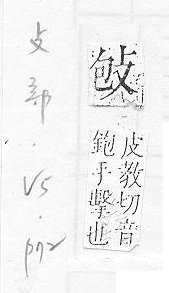 皮教切音
鉋手擊也
攴部
V5.
p72